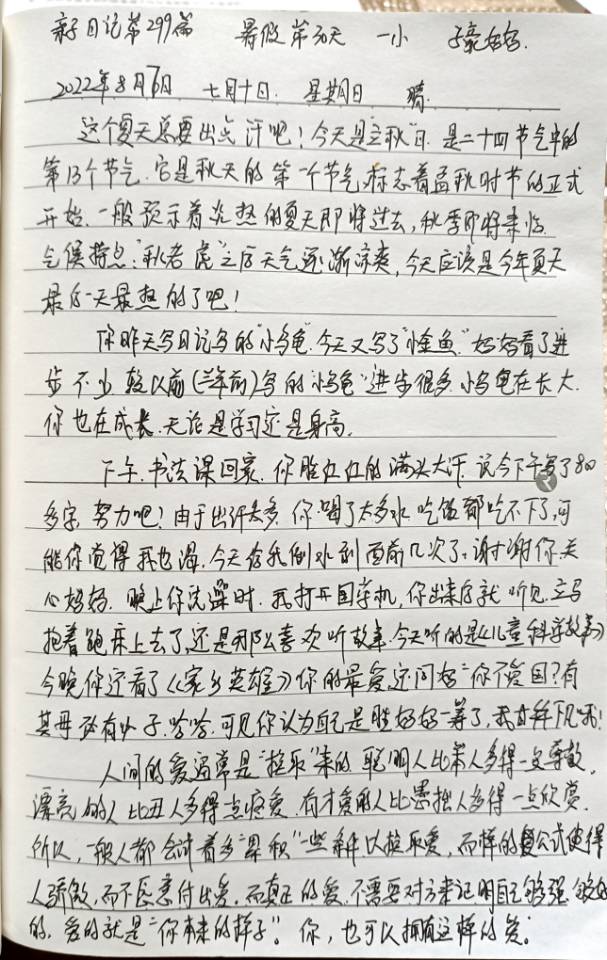 亲子日记第299篇 暑假第30天 一小 子豪妈妈.
2022年8月7日 七月十日. 星期日 晴.
这个夏天总要出点汗吧！今天是"立秋"日.是二十四节气中的
第13个节气.它是秋天的第一个节气,标志着孟秋时节的正式
开始.一般预示着炎热的夏天即将过去,秋季即将来临.
气候特点:"秋老虎"之后天气逐渐凉爽,今天应该是今年夏天
最后一天最热的了吧!
你昨天写日记写的"小乌龟".今天又写了"小金鱼".妈妈看了进
步不少.较以前(三年前)写的"小乌龟"进步很多.小乌龟在长大.
你也在成长.无论是学习还是身高.
下午.书法课回家.你脸红红的满头大汗.说今下午写了80
多字.努力吧!由于出汗太多.你喝了太多水.吃饭都吃不下了,可
能你觉得我也渴.今天给我倒水到面前几次了。谢谢你关
心妈妈.晚上你洗澡时.我打开国学机,你出来后就听见.立马
抱着跑床上去了,还是那么喜欢听故事.今天听的是《儿童科学故事》
今晚你还看了《家乡英雄》你的最爱,还问妈"你不爱国?有
其母必有其子.哈哈.可见你认为自己是胜妈妈一筹了,我甘拜下风哦!
人间的爱通常是"換取"来的.聪明人比笨人多得一点尊敬,
漂亮的人比丑人多得一点疼爱.有才华的人比愚拙人多得一点欣赏.
所以,一般人都会试着多"累积"一些条件以换取爱,而这样的公式使得
人骄傲,而不愿意付出爱.而真正的爱.不需要对方来证明自己够强.够好
的.爱的就是"你本来的样子"。你,也可以拥有这样的爱.